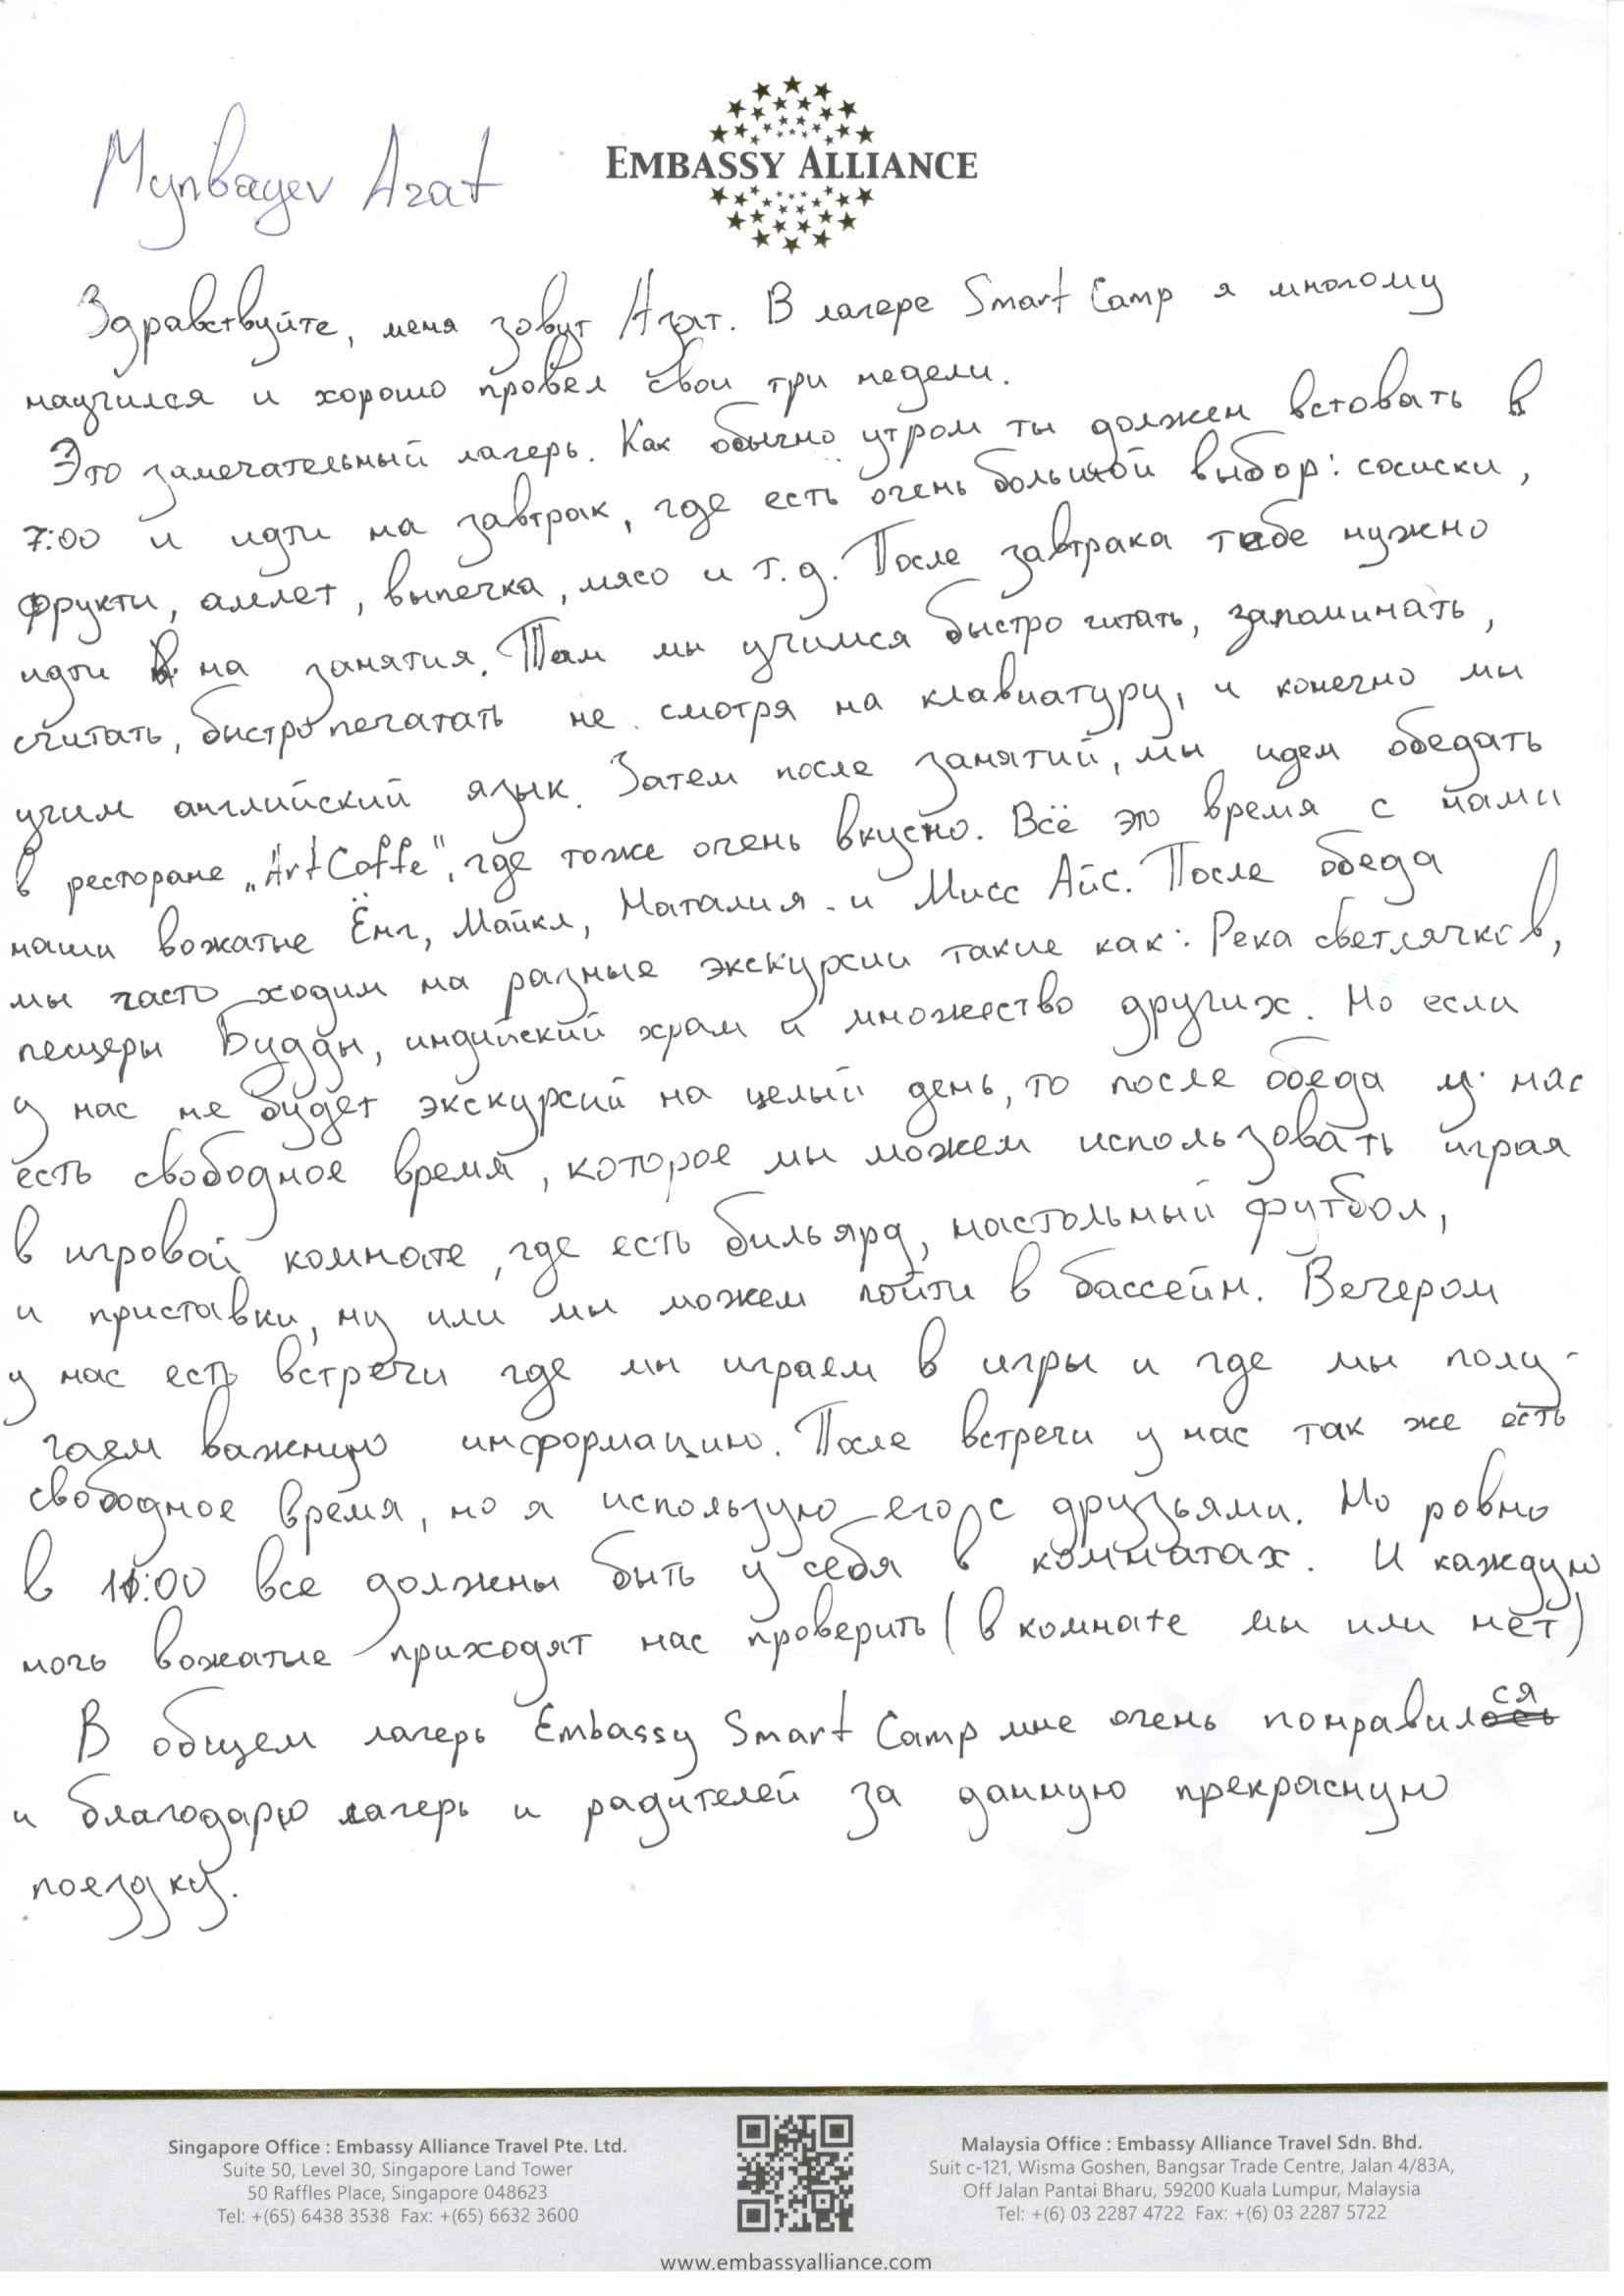 Mynbayev Azat
EMBASSY ALLIANCE
Здравствуйте, меня зовут Азат. В лагере Smart Camp я многому
научился и хорошо провел свои три недели.
Это замечательный лагерь. Как обычно утром ты должен встовать в
7:00 и идти на завтрак, где есть очень большой выбор: сосиски,
фрукты, амлет, выпечка, мясо и т.д. После завтрака тебе нужно
идти на занятия. Там мы учимся быстро читать, запоминать,
считать, быстро печатать не смотря на клавиатуру, и конечно мы
учим английский язык. Затем после занятий, мы идем обедать
в ресторане „ArtCaffe", где тоже очень вкусно. Всё это время с нами
наши вожатые Ёнг, Майкл, Наталия и Мисс Айс. После обеда
мы часто ходим на разные экскурсии такие как: Река светлячков,
пещеры Будды, индийский храм и множество других. Но если
у нас не будет экскурсий на целый день, то после обеда у нас
есть свободное время, которое мы можем использовать играя
в игровой комнате, где есть бильярд, настольный футбол,
и приставки, ну или мы можем пойти в бассейн. Вечером
у нас есть встречи где мы играем в игры и где мы полу-
чаем важную информацию. После встречи у нас так же есть
свободное время, но я использую его с друзьями. Но ровно
в 11:00 все должны быть у себя в комнатах. И каждую
ночь вожатые приходят нас проверить (в комнате мы или нет)
В общем лагерь Embassy Smart Camp мне очень понравился
и благодарю лагерь и радителей за данную прекрасную
поездку.
Singapore Office : Embassy Alliance Travel Pte. Ltd.
Suite 50, Level 30, Singapore Land Tower
50 Raffles Place, Singapore 048623
Tel: +(65) 6438 3538 Fax: +(65) 6632 3600
Malaysia Office : Embassy Alliance Travel Sdn. Bhd.
Suit c-121, Wisma Goshen, Bangsar Trade Centre, Jalan 4/83A,
Off Jalan Pantai Bharu, 59200 Kuala Lumpur, Malaysia
Tel: +(6) 03 2287 4722 Fax: +(6) 03 2287 5722
www.embassyalliance.com